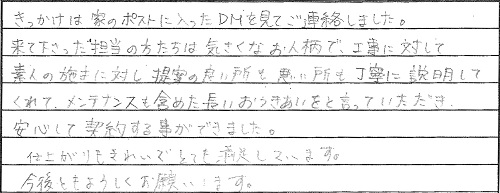 きっかけは家のポストに入ったDMを見てご連絡しました。
来て下さった担当の方たちは気さくなお人柄で、工事に対して
素人の施主に対し提案の良い所も悪い所も丁寧に説明して
くれて、メンテナンスも含めた長いおつきあいをと言っていただき、
安心して契約する事ができました。
仕上がりもきれいでとても満足しています。
今後ともよろしくお願いします。